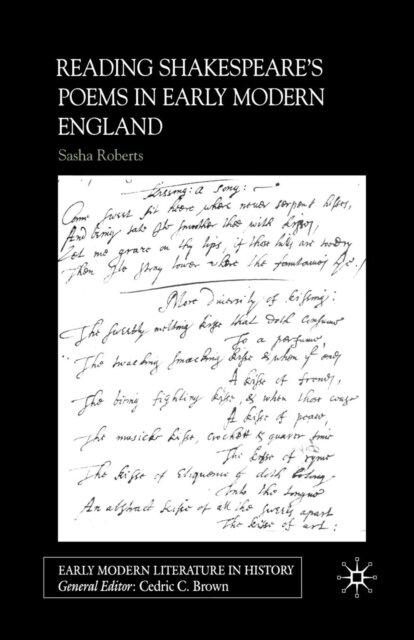 READING SHAKESPEARE'S
POEMS IN EARLY MODERN
ENGLAND
Sasha Roberts
Kissing: A song:
Come sweet sit heere where never serpent hisses,
And being sate Ile smoother thee with kisses,
Let me graze on thy lips, if those hills are
Then Ile stray lower where the fountaines lye:
More Diversity of kissing:
The sweetly melting kisse that doth consume
To a perfume,
The smacking kisse & when it ends
A kisse of frends,
The fighting kisse, & when those
A kisse of peace,
The musicke kisse, crochett & quaver time
The kisse of ryme
The kisse of Eliquence doth belong
Unto the tongue
An abstract kisse of all the sweets apart
The kisse of art:
EARLY MODERN LITERATURE IN HISTORY
General Editor: Cedric C. Brown